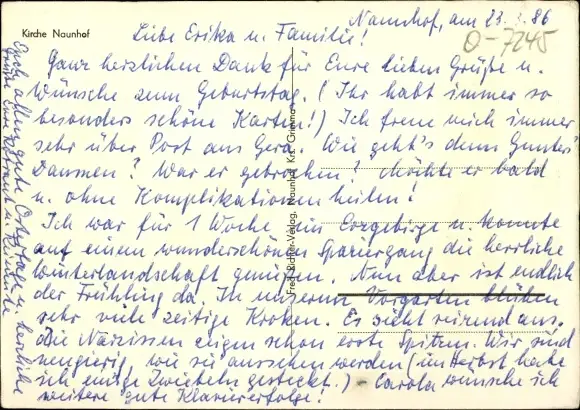 Naunhof, am 23.3.86
O-7245
Kirche Naunhof
Liebe Erika u. Familie!
Ganz herzlichen Dank für Eure lieben Grüße u.
Wünsche zum Geburtstag. (Ihr habt immer so
besonders schöne Karten!) Ich freue mich immer
sehr über Post aus Gera. Wie geht's denn Gunters
Daumen? War er gebrochen? Möchte er bald
u. ohne Komplikationen heilen!
Ich war für 1 Woche im Erzgebirge u. konnte
auf einem wunderschönen Spaziergang die herrliche
Winterlandschaft genießen. Nun aber ist endlich
der Frühling da. In unserm Vorgarten blühen
sehr viele zeitige Kroken. Es sieht reizend aus.
Die Narzissen zeigen schon erste Spitzen. Wir sind
neugierig, wie sie aussehen werden (im Herbst habe
ich einige Zwiebeln gesteckt.) - Carola wünsche ich
weitere gute Klaviererfolge!
Euch allen gute Ostertage u. herzliche
Grüße Eure u.
Fred Richter-Verlag, Naunhof Krs. Grimma